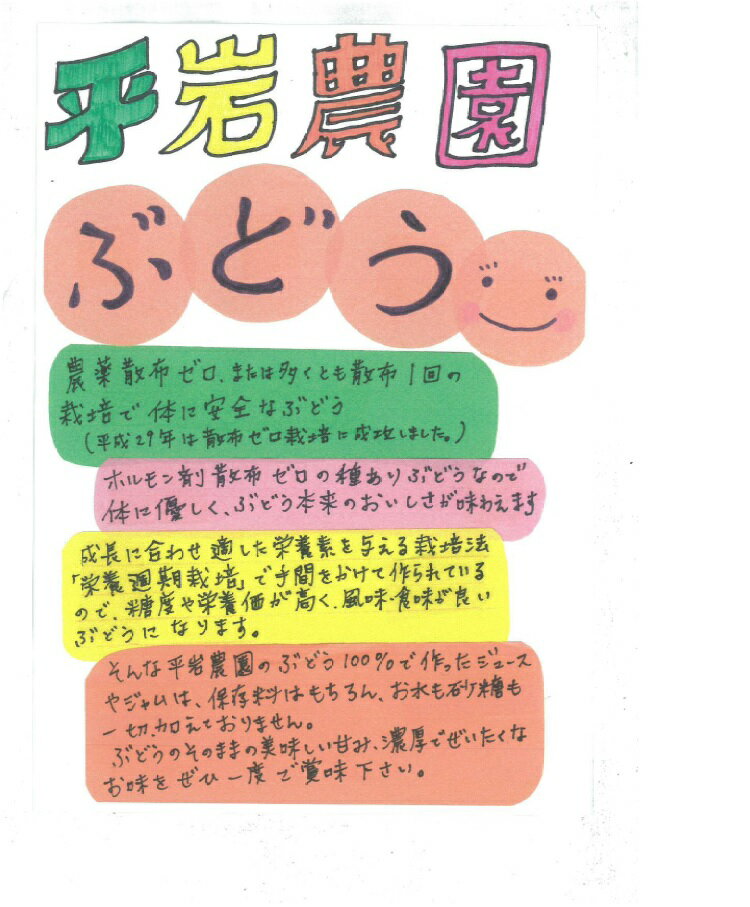 平岩農園
ぶどう
農薬散布ゼロ、または多くとも散布1回の
栽培で体に安全なぶどう
(平成29年は散布ゼロ栽培に成功しました。)
ホルモン剤散布ゼロの種ありぶどうなので
体に優しく、ぶどう本来のおいしさが味わえます
成長に合わせ適した栄養素を与える栽培法
「栄養週期栽培」で手間をかけて作られている
ので、糖度や栄養価が高く、風味・食味が良い
ぶどうになります。
そんな平岩農園のぶどう100%で作ったジュース
やジャムは、保存料はもちろん、お水も砂糖も
一切、加えておりません。
ぶどうのそのままの美味しい甘み、濃厚でぜいたくな
お味をぜひ一度ご賞味下さい。